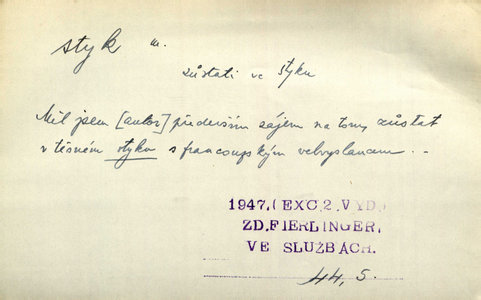 styk m.
zůstati ve styku
Měl jsem [autor] především zájem na tom, zůstat
v těsném styku s francouzským velvyslancem. –
1947, (EXC. 2. VYD.)
ZD. FIERLINGER,
VE SLUŽBÁCH.
44, 5.